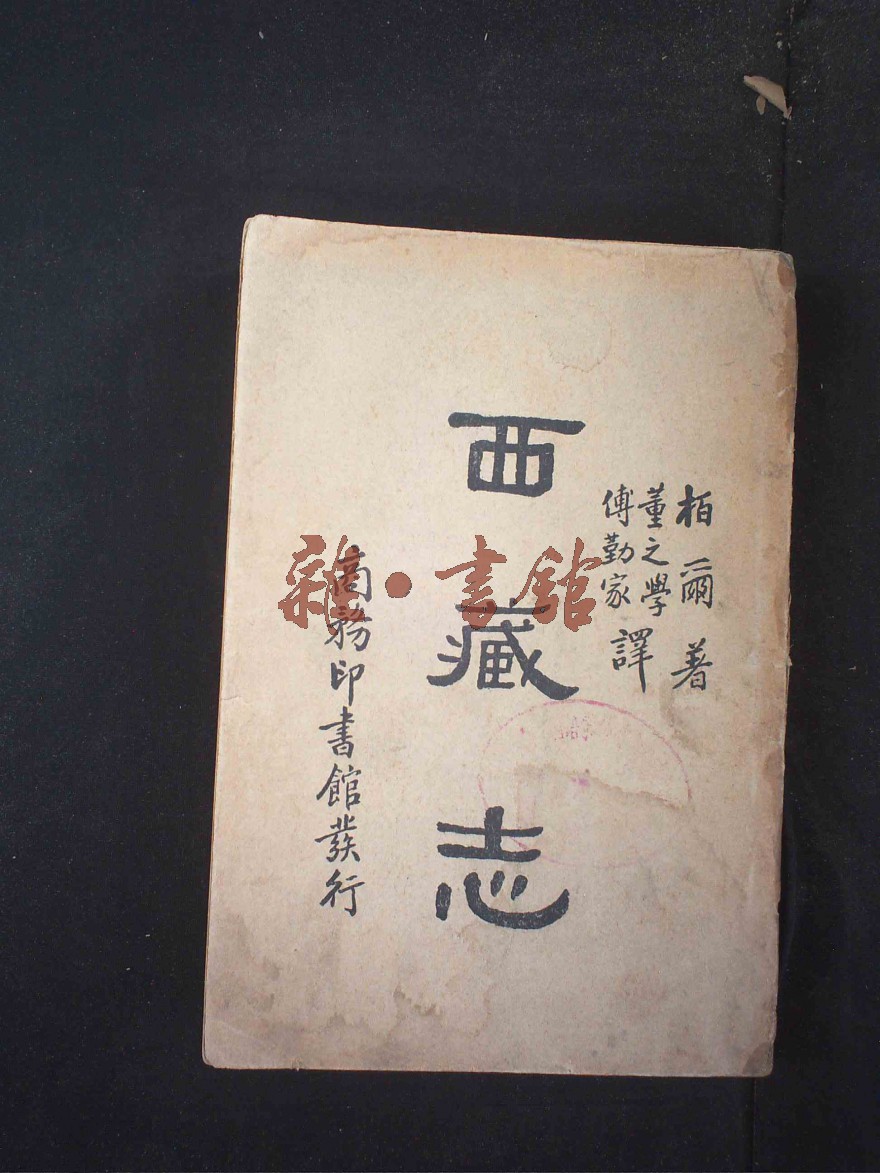 柏爾 著
董之學
傅勤家 譯
西藏志
商務印書館發行
雜·書館